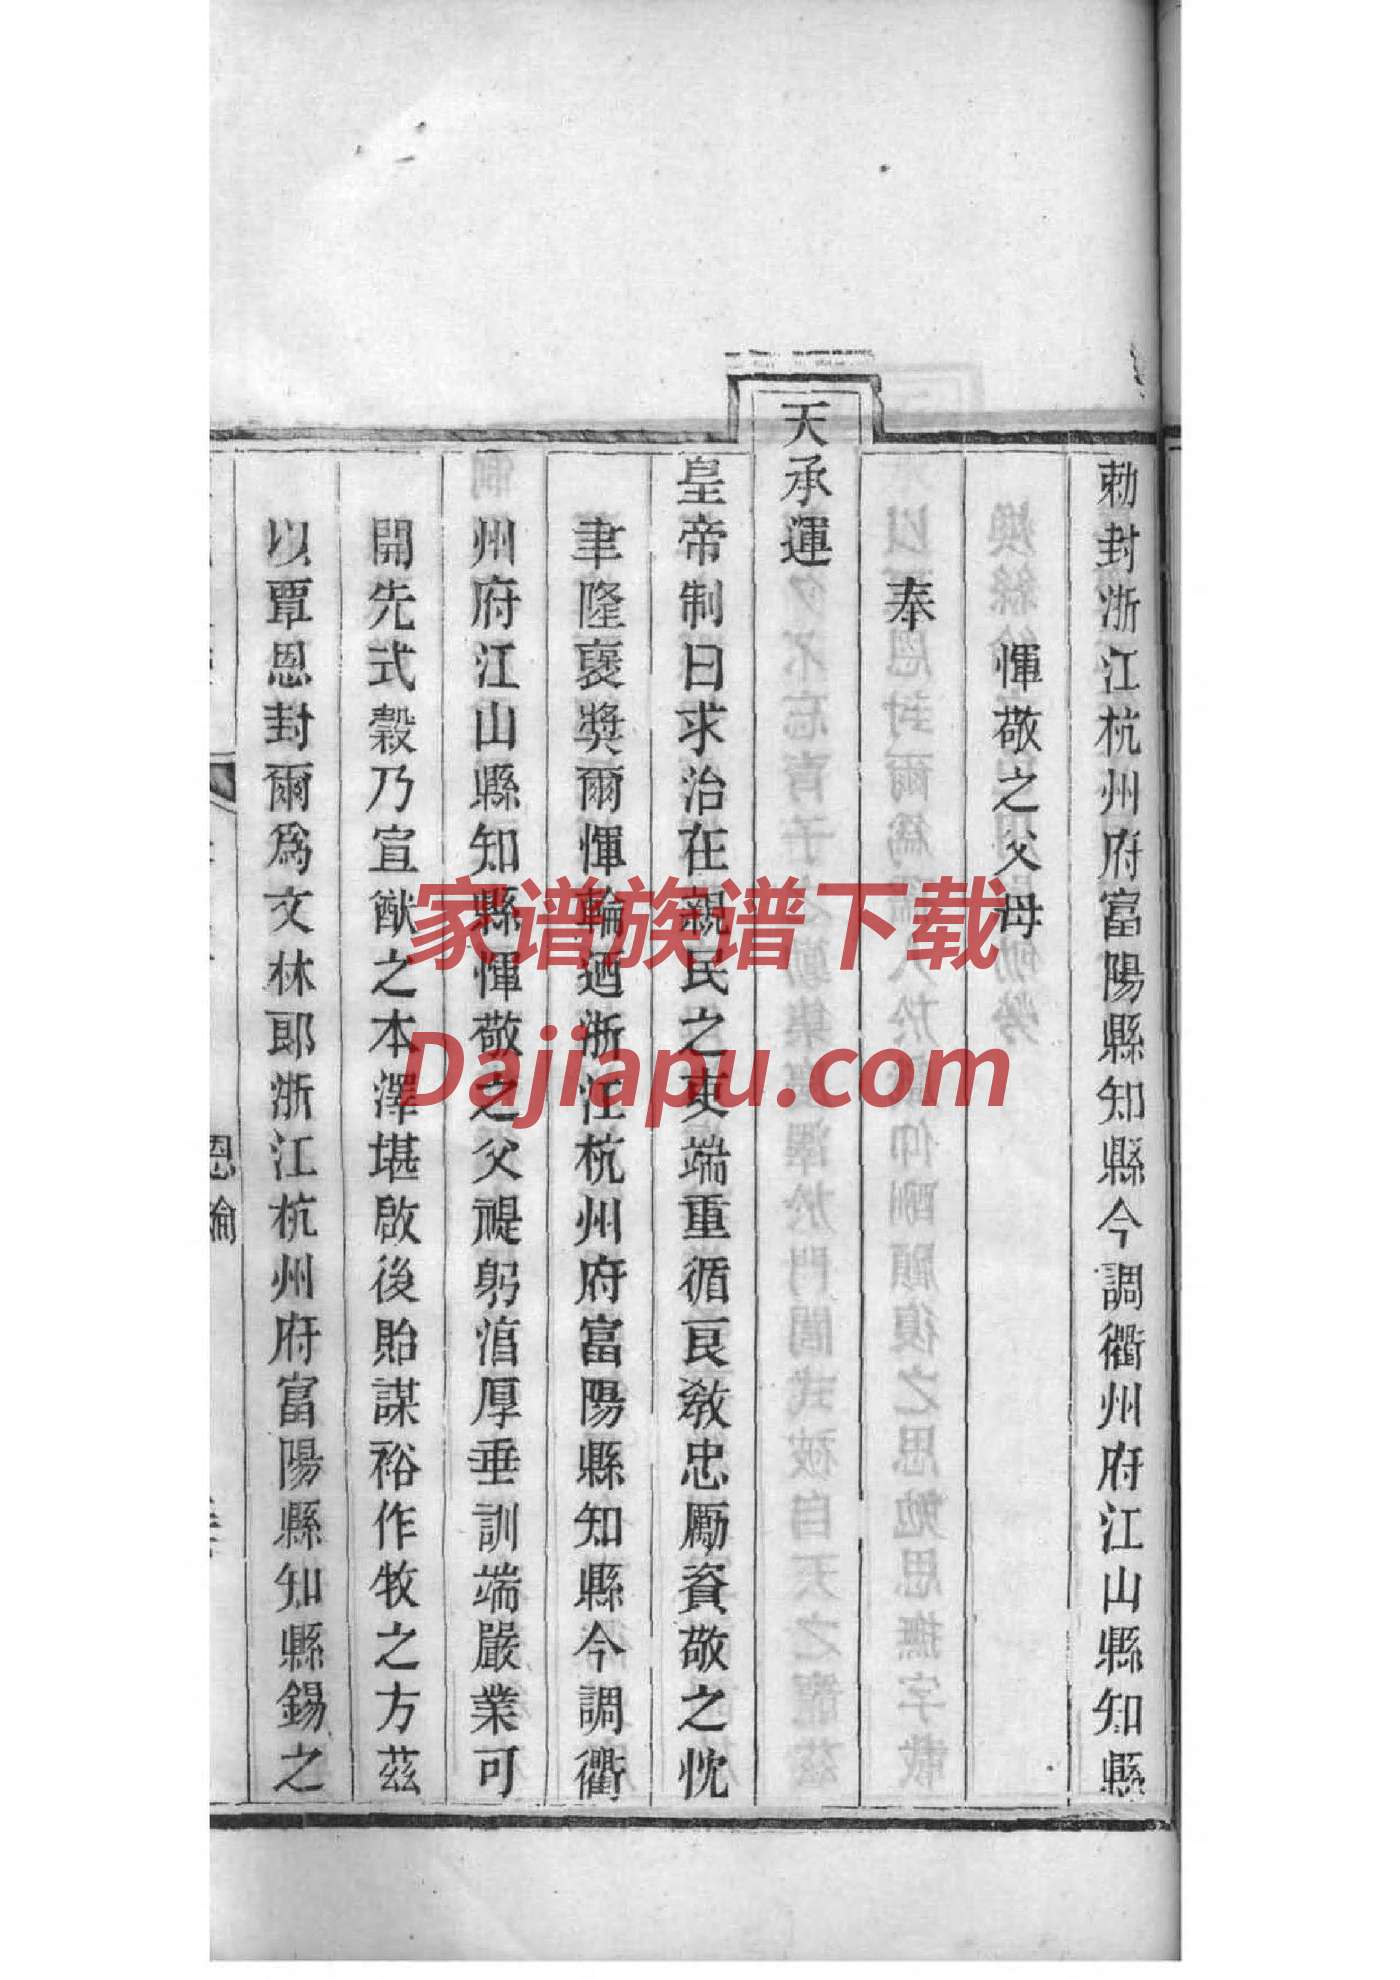 勅封浙江杭州府富陽縣知縣今調衢州府江山縣知縣
惲敬之父母
奉
天承運
皇帝制曰求治在親民之吏端重循良敎忠勵資敬之忱
聿隆褒獎爾惲輪廼浙江杭州府富陽縣知縣今調衢
州府江山縣知縣惲敬之父禔躬湻厚垂訓端嚴業可
開先式穀乃宣猷之本澤堪啟後貽謀裕作牧之方茲
以覃恩封爾爲文林郎浙江杭州府富陽縣知縣錫之
恩綸
家谱族谱下载
Dajiapu.com